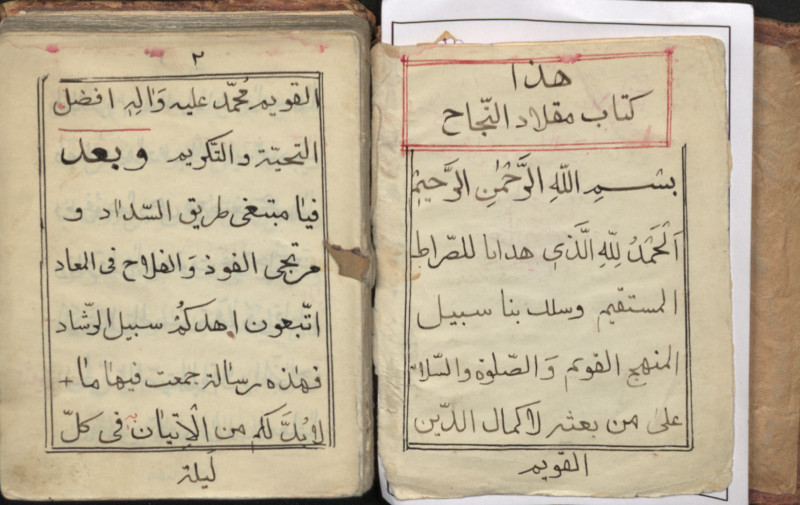 هذا
كتاب مقلاد النّجاح
بسم اللّٰه الرَّحْمٰنِ الرَّحيمْ
اَلْحَمْدُ لِلّٰهِ الَّذي هدانا للصّراط
المستقيم وسلك بنا سبيل
المنهج القويم وَالصّلوة والسّلام
على من بعثه لاكمال الدّين
القويم
٢
القويم مُحمّد عليه وَاٰلِهِ افضل
التحيّة والتكريم وبعد
فيا مبتغى طريق السّداد و
مرتجى الفوذ وَالفلاح فى المعاد
اتّبعون اهدكُمْ سبيل الرّشاد
فهٰذه رسالة جمعت فيها ما +
لابُدَّ لكم من الْاِتيان به فى كلّ
ليلة